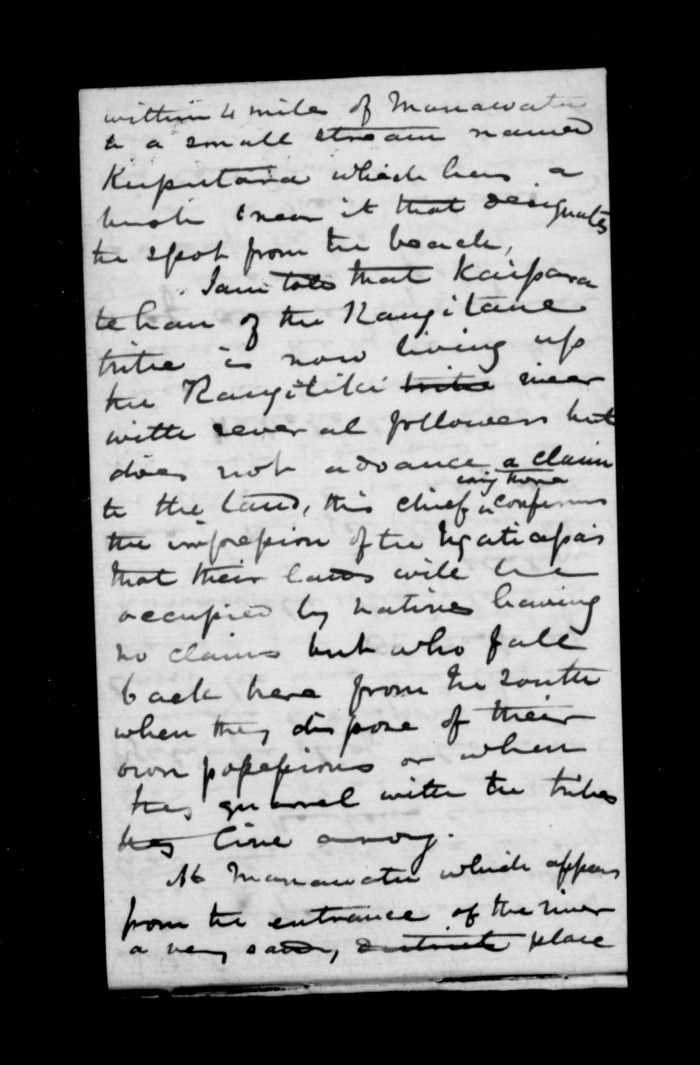 within 4 miles of Manawatu
to a small stream named
Kuputara which has a
bush near it that designates
the spot from the beach,
I am told that Kaipara
te hau of the Rangitane
tribe is now living up
the Rangitiki tribe river
with several followers but
does not advance a claim
to the land, this chief confirms
the impression of the Ngatiapa's
that their lands will be
occupied by natives having
no claims but who fall
back here from the south
when they dispose of their
own possessions or when
they quarrel with the tribes
they live among.
At Manawatu which appears
from the entrance of the river
a very sandy, district place